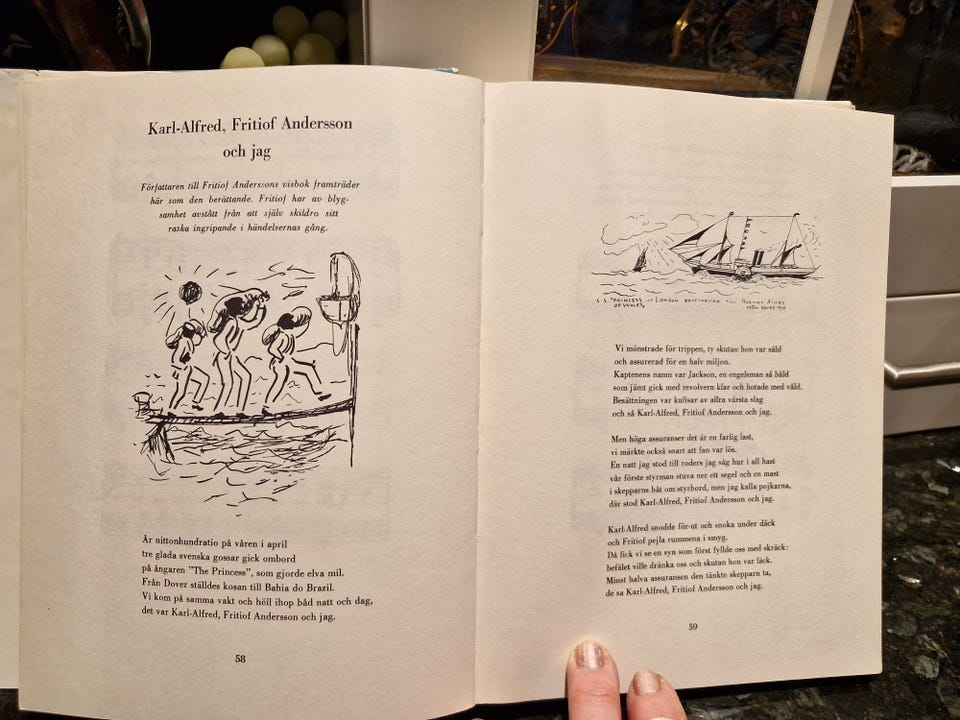 Karl-Alfred, Fritiof Andersson
och jag
Författaren till Fritiof Anderssons visbok framträder
här som den berättande. Fritiof har av blyg-
samhet avstått från att själv skildra sitt
raska ingripande i händelsernas gång.
År nittonhundratio på våren i april
tre glada svenska gossar gick ombord
på ångaren "The Princess", som gjorde elva mil.
Från Dover ställdes kosan till Bahia do Brazil.
Vi kom på samma vakt och höll ihop båd natt och dag,
det var Karl-Alfred, Fritiof Andersson och jag.
58
S S "PRINCESS OF LONDON DESTINERAD TILL BUENOS AIRES
OF WALES, FRÅN DOVER 1910
Vi mönstrade för trippen, ty skutan hon var såld
och assurerad för en halv miljon.
Kaptenens namn var Jackson, en engelsman så båld
som jämt gick med revolvern klar och hotade med våld.
Besättningen var kulisar av allra värsta slag
och så Karl-Alfred, Fritiof Andersson och jag.
Men höga assuranser det är en farlig last,
vi märkte också snart att fan var lös.
En natt jag stod till roders jag såg hur i all hast
vår förste styrman stuva ner ett segel och en mast
i skepparns båt om styrbord, men jag kalla pojkarna,
där stod Karl-Alfred, Fritiof Andersson och jag.
Karl-Alfred snodde för-ut och snoka under däck
och Fritiof pejla rummena i smyg.
Då fick vi se en syn som först fyllde oss med skräck:
befälet ville dränka oss och skutan hon var läck.
Minst halva assuransen den tänkte skepparn ta,
de sa Karl-Alfred, Fritiof Andersson och jag.
59